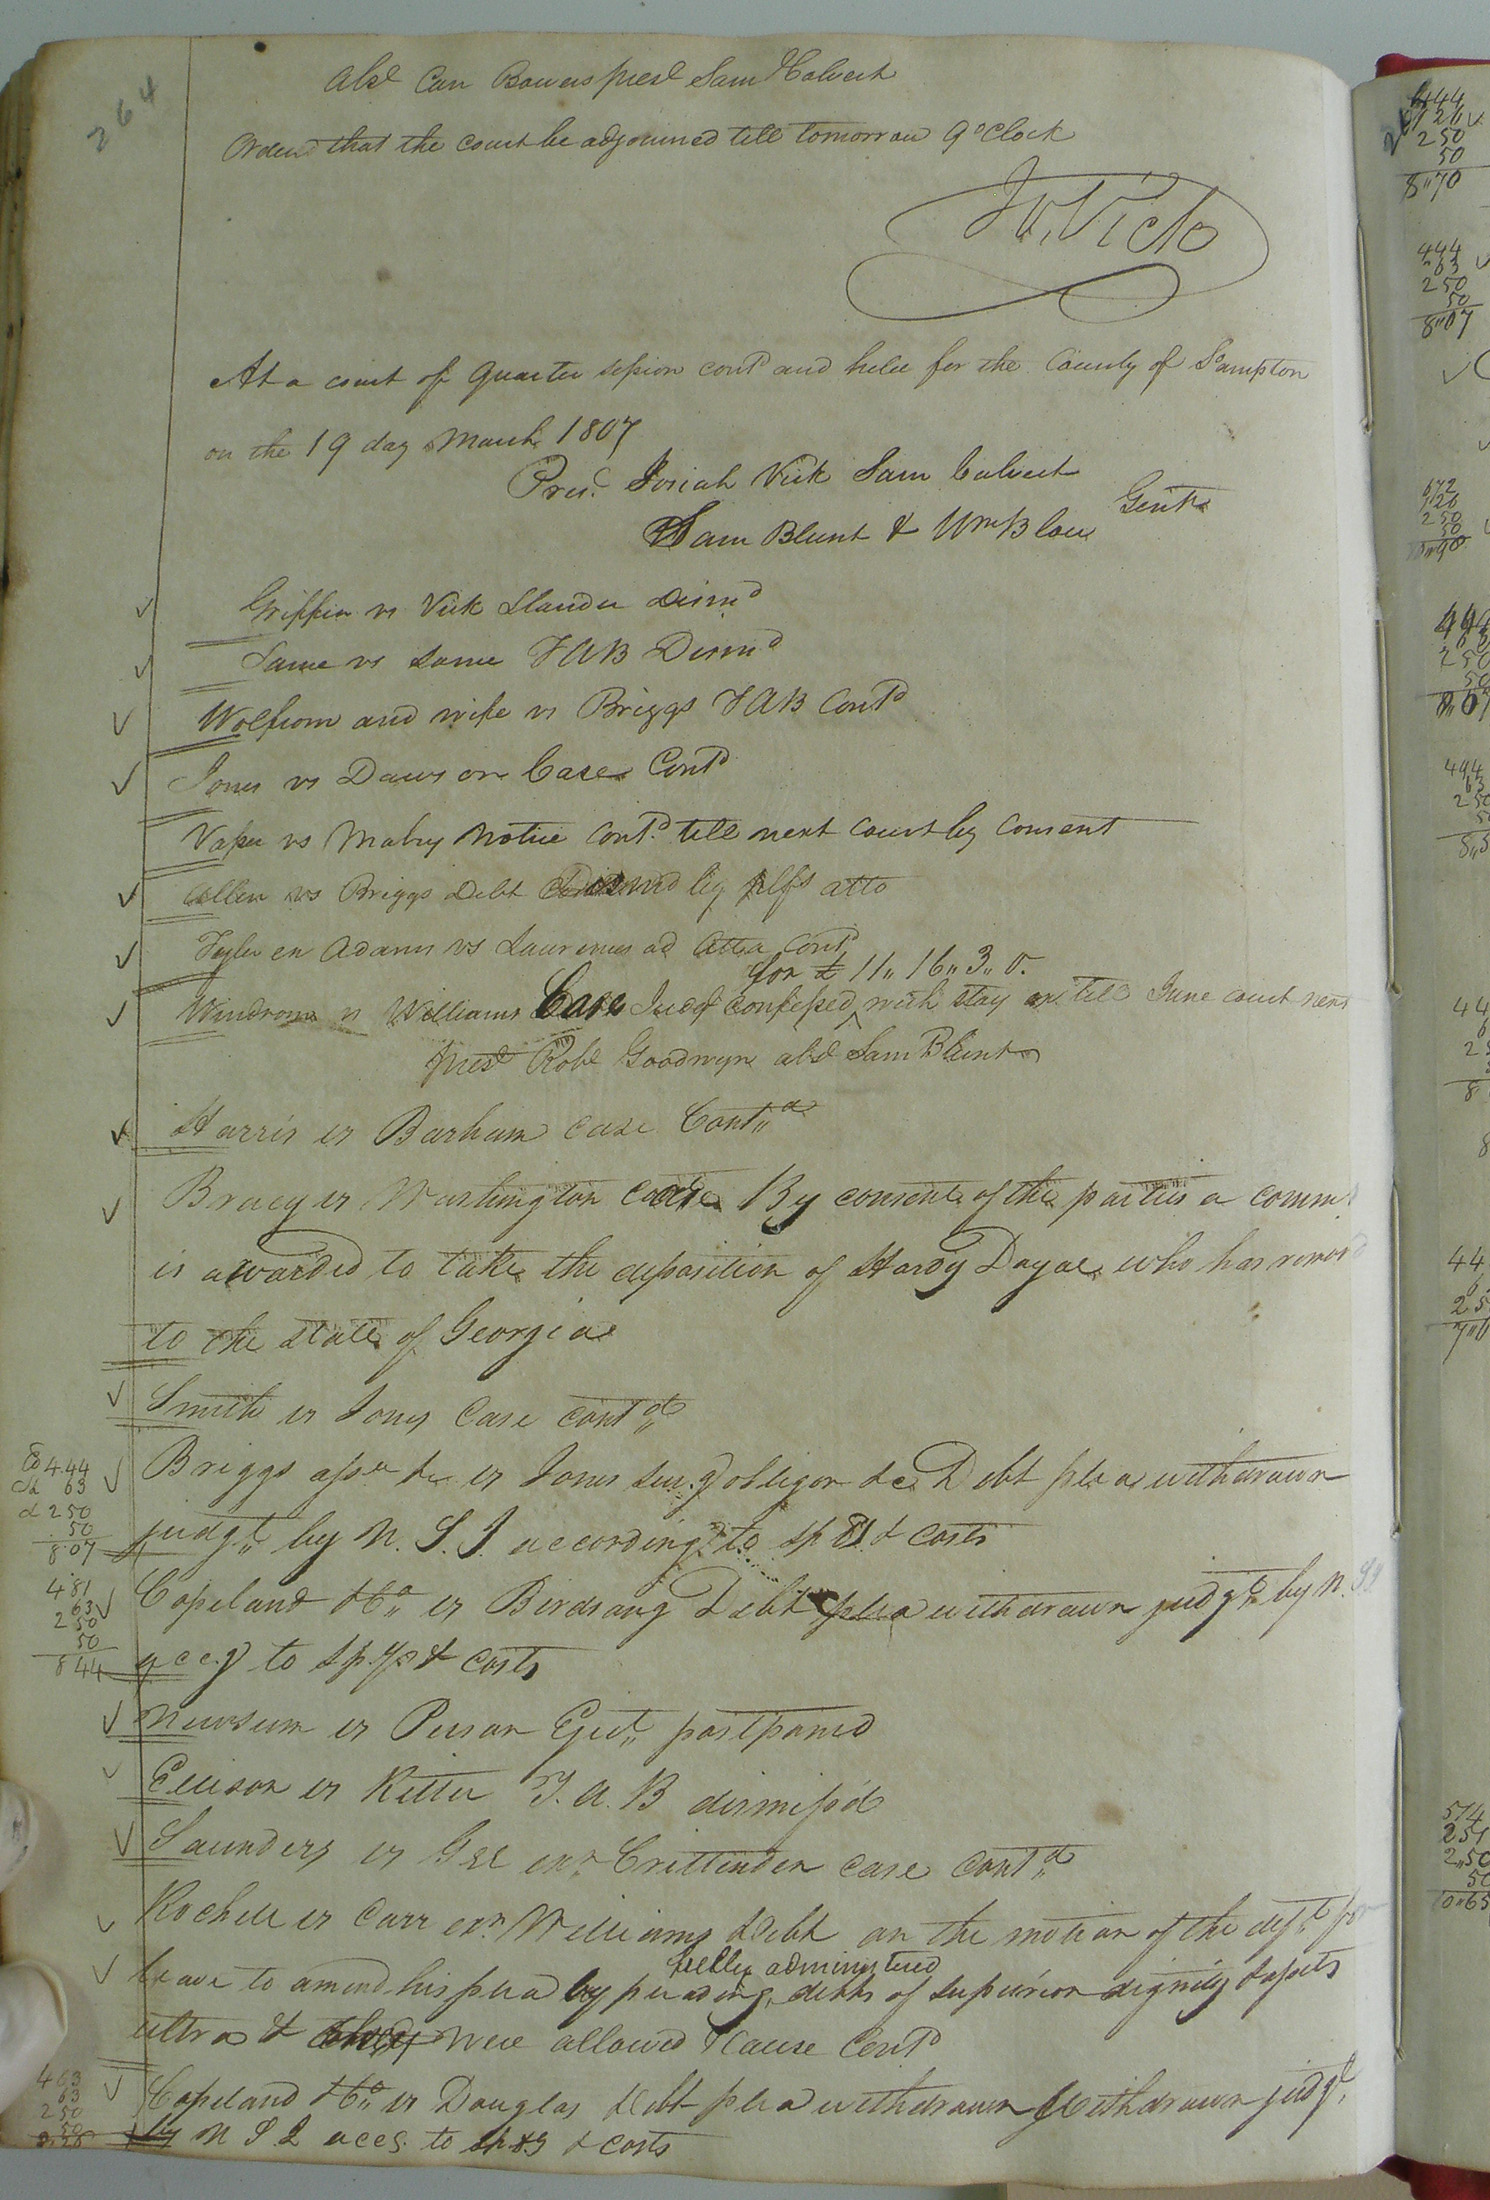 264
Abst Carr Bowers prest Sam Calvert
Ordered that the court be adjourned till tomorrow 9 oClock
At a court of Quarter session contd and held for the County of Sampton
on the 19 day March 1807
Pres.t Josiah Vick Sam Calvert
Gent
Sam Blunt & Wm Blow
Griffin vs Vick Slander Dismd
Same vs Same TAB Dismd
Wolfrom and wife vs Briggs TAB Contd
Jones vs Dawson Case Contd
Vaser vs Mabry Notice Contd till next court by consent
Allen vs Briggs Debt Dismd by plfs atto
Tyler en Adams vs Lawrences ad Atta Contd
for £ 11,, 16,, 3,, 0.
Windrom vs Williams Case Judgt confessed with stay ex till June court next
prest Robt Goodwyn abst Sam Blunt
Harris vs Barham Case Cont,,d
Bracy vs Washington Case By consent of the parties a comm
is awarded to take the deposition of Hardy who has remov
to the state of Georgia
Smith vs Jones Case cont,,d
Co 4.44
63
d 2 50
50
8.07
Briggs assee &c vs Jones surg obligor &c Debt plea withdrawn
judgt,, by N. S. I. according to sp & costs
4 81
63
2 50
50
8 44
Copeland & Co,, vs Birdsong Debt plea withdrawn judgt by N. SI
accg to sp & costs
Newsum vs Person Eject,, postponed
Ellison vs Ritter T. A. B dismiss'd
Saunders vs Gee exr Crittenden case cont,,d
Rochell vs Carr exr. Williams Debt on the motion of the deft for
fully administered
leave to amend his plea by pleading debts of superior dignity & assets
ultra & were allowed & cause Contd
4 63
63
2 50
50
Copeland & Co,, vs Douglas Debt plea withdrawn withdrawn judgt,
by N S I accg. to sp & costs
6 44
1 26
2 50
50
8"70
4 44
63
2 50
50
8"07
6 72
1 26
2 50
50
2 50
50
8,07
4 94
63
2 50
44
44
5 14
2 51
2,,50
50
10,,65